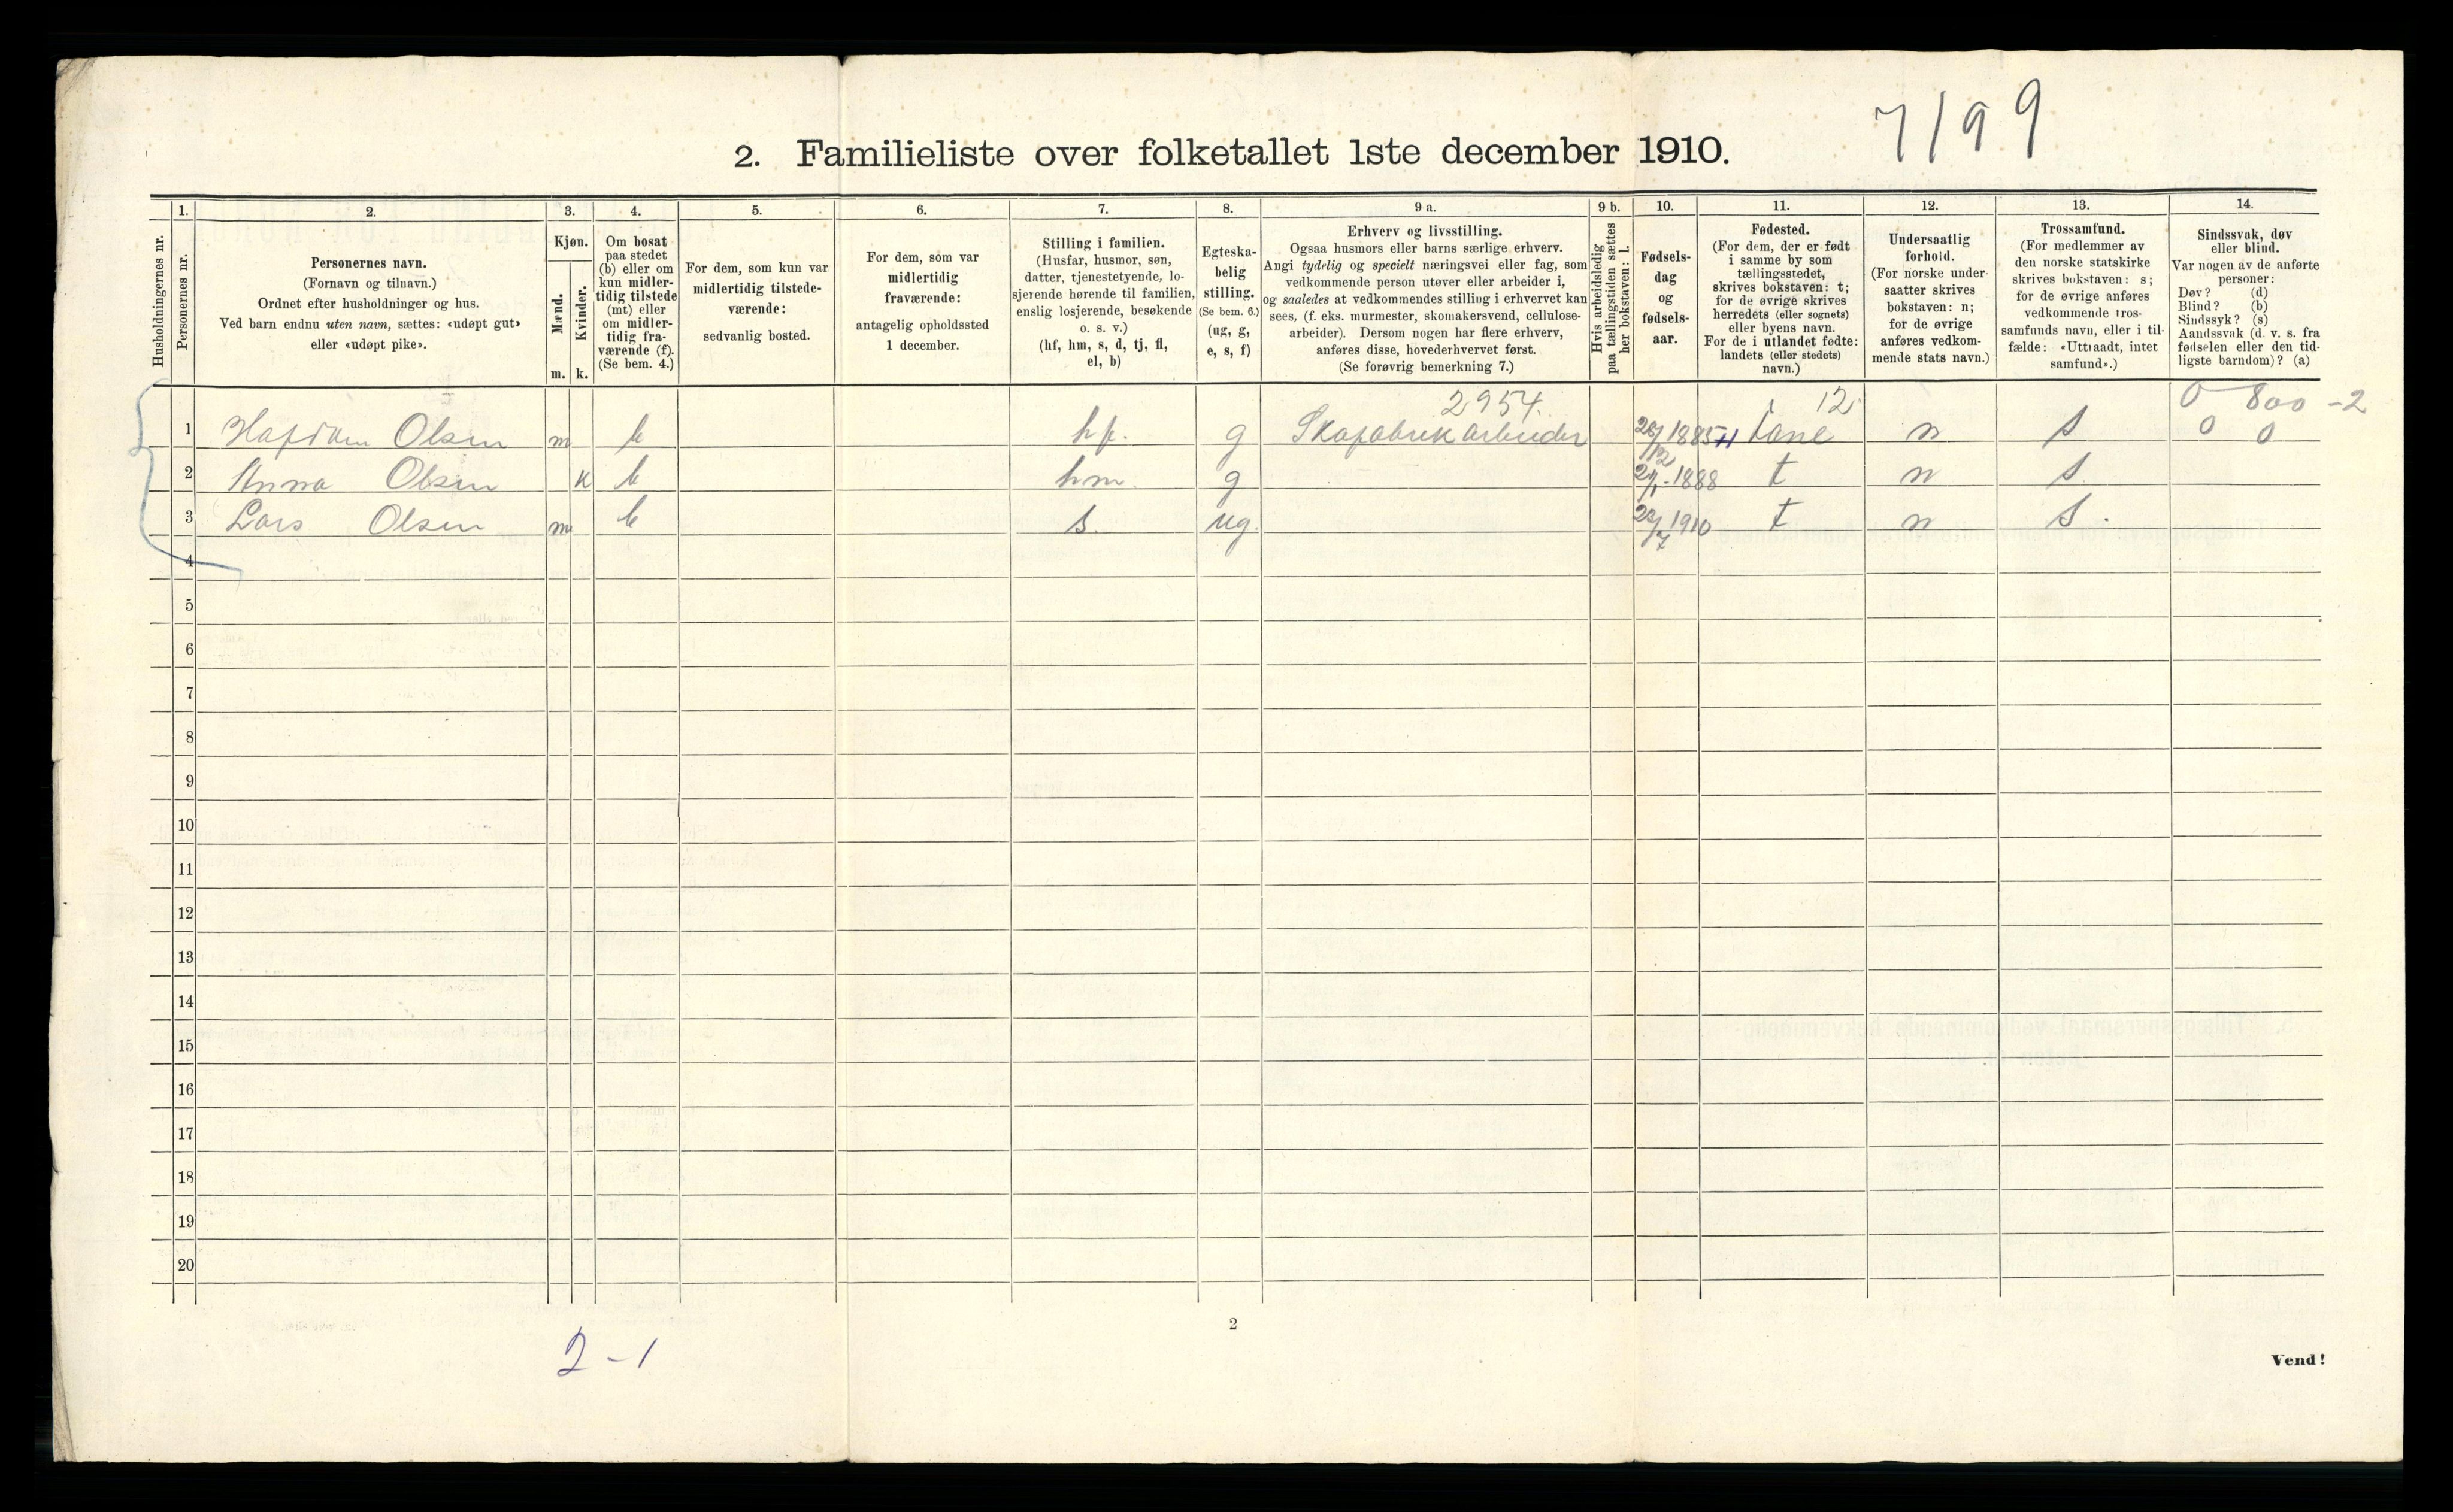 7199
2. Familieliste over folketallet 1ste december 1910.
Husholdningernes nr.
1.
Personernes nr.
2.
Personernes navn.
(Fornavn og tilnavn.)
Ordnet efter husholdninger og hus.
Ved barn endnu uten navn, sættes: «udøpt gut»
eller «udøpt pike».
3.
Kjøn.
Mænd.
Kvinder.
m. k.
4.
Om bosat
paa stedet
(b) eller om
kun midler-
tidig tilstede
(mt) eller
om midler-
tidig fra-
værende (f).
(Se bem. 4.)
5.
For dem, som kun var
midlertidig tilstede-
værende:
sedvanlig bosted.
6.
For dem, som var
midlertidig
fraværende:
antagelig opholdssted
1 december.
7.
Stilling i familien.
(Husfar, husmor, søn,
datter, tjenestetyende, lo-
sjerende hørende til familien,
enslig losjerende, besøkende
o. s. v.)
(hf, hm, s, d, tj, fl,
el, b)
8.
Egteska-
belig
stilling.
(Se bem. 6.)
(ug, g,
e, s, f)
9 a.
Erhverv og livsstilling.
Ogsaa husmors eller barns særlige erhverv.
Angi tydelig og specielt næringsvei eller fag, som
vedkommende person utøver eller arbeider i,
og saaledes at vedkommendes stilling i erhvervet kan
sees, (f. eks. murmester, skomakersvend, cellulose-
arbeider). Dersom nogen har flere erhverv,
anføres disse, hovederhvervet først.
(Se forøvrig bemerkning 7.)
9 b.
Hvis arbeidsledig
paa tællingstiden sættes
her bokstaven: l.
10.
Fødsels-
dag
og
fødsels-
aar.
11.
Fødested.
(For dem, der er født
i samme by som
tællingsstedet,
skrives bokstaven: t;
for de øvrige skrives
herredets (eller sognets)
eller byens navn.
For de i utlandet fødte:
landets (eller stedets)
navn.)
12.
Undersaatlig
forhold.
(For norske under-
saatter skrives
bokstaven: n;
for de øvrige
anføres vedkom-
mende stats navn.)
13.
Trossamfund.
(For medlemmer av
den norske statskirke
skrives bokstaven: s;
for de øvrige anføres
vedkommende tros-
samfunds navn, eller i til-
fælde: «Uttraadt, intet
samfund».)
14.
Sindssvak, døv
eller blind.
Var nogen av de anførte
personer:
Døv? (d)
Blind? (b)
Sindssyk? (s)
Aandssvak (d. v. s. fra
fødselen eller den tid-
ligste barndom)? (a)
2954. 12 0 800 -2
1 Olsen m b hf. g Skofabrik arbeider 1885 n s 0 0
2 Anna Olsen k b hm. g 1888 t n s.
3 Lars Olsen m b s. ug. 1910 t n s.
4
5
6
7
8
9
10
11
12
13
14
15
16
17
18
19
20
2
2-1
Vend!